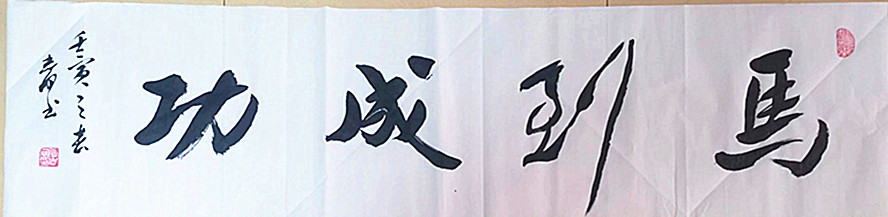 馬到成功
壬寅之春
書